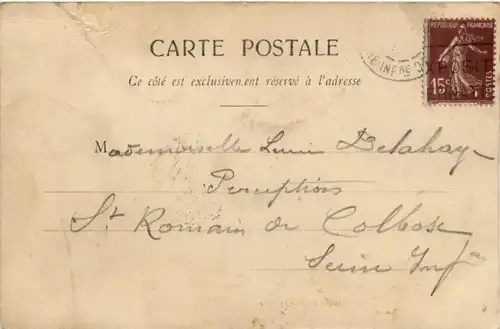 CARTE POSTALE
Ce côté est exclusivement réservé à l'adresse
RÉPUBLIQUE FRANÇAISE
15c POSTES
Mademoiselle Lucie Delahaye
Perception
St Romain de Colbosc
Seine Infre